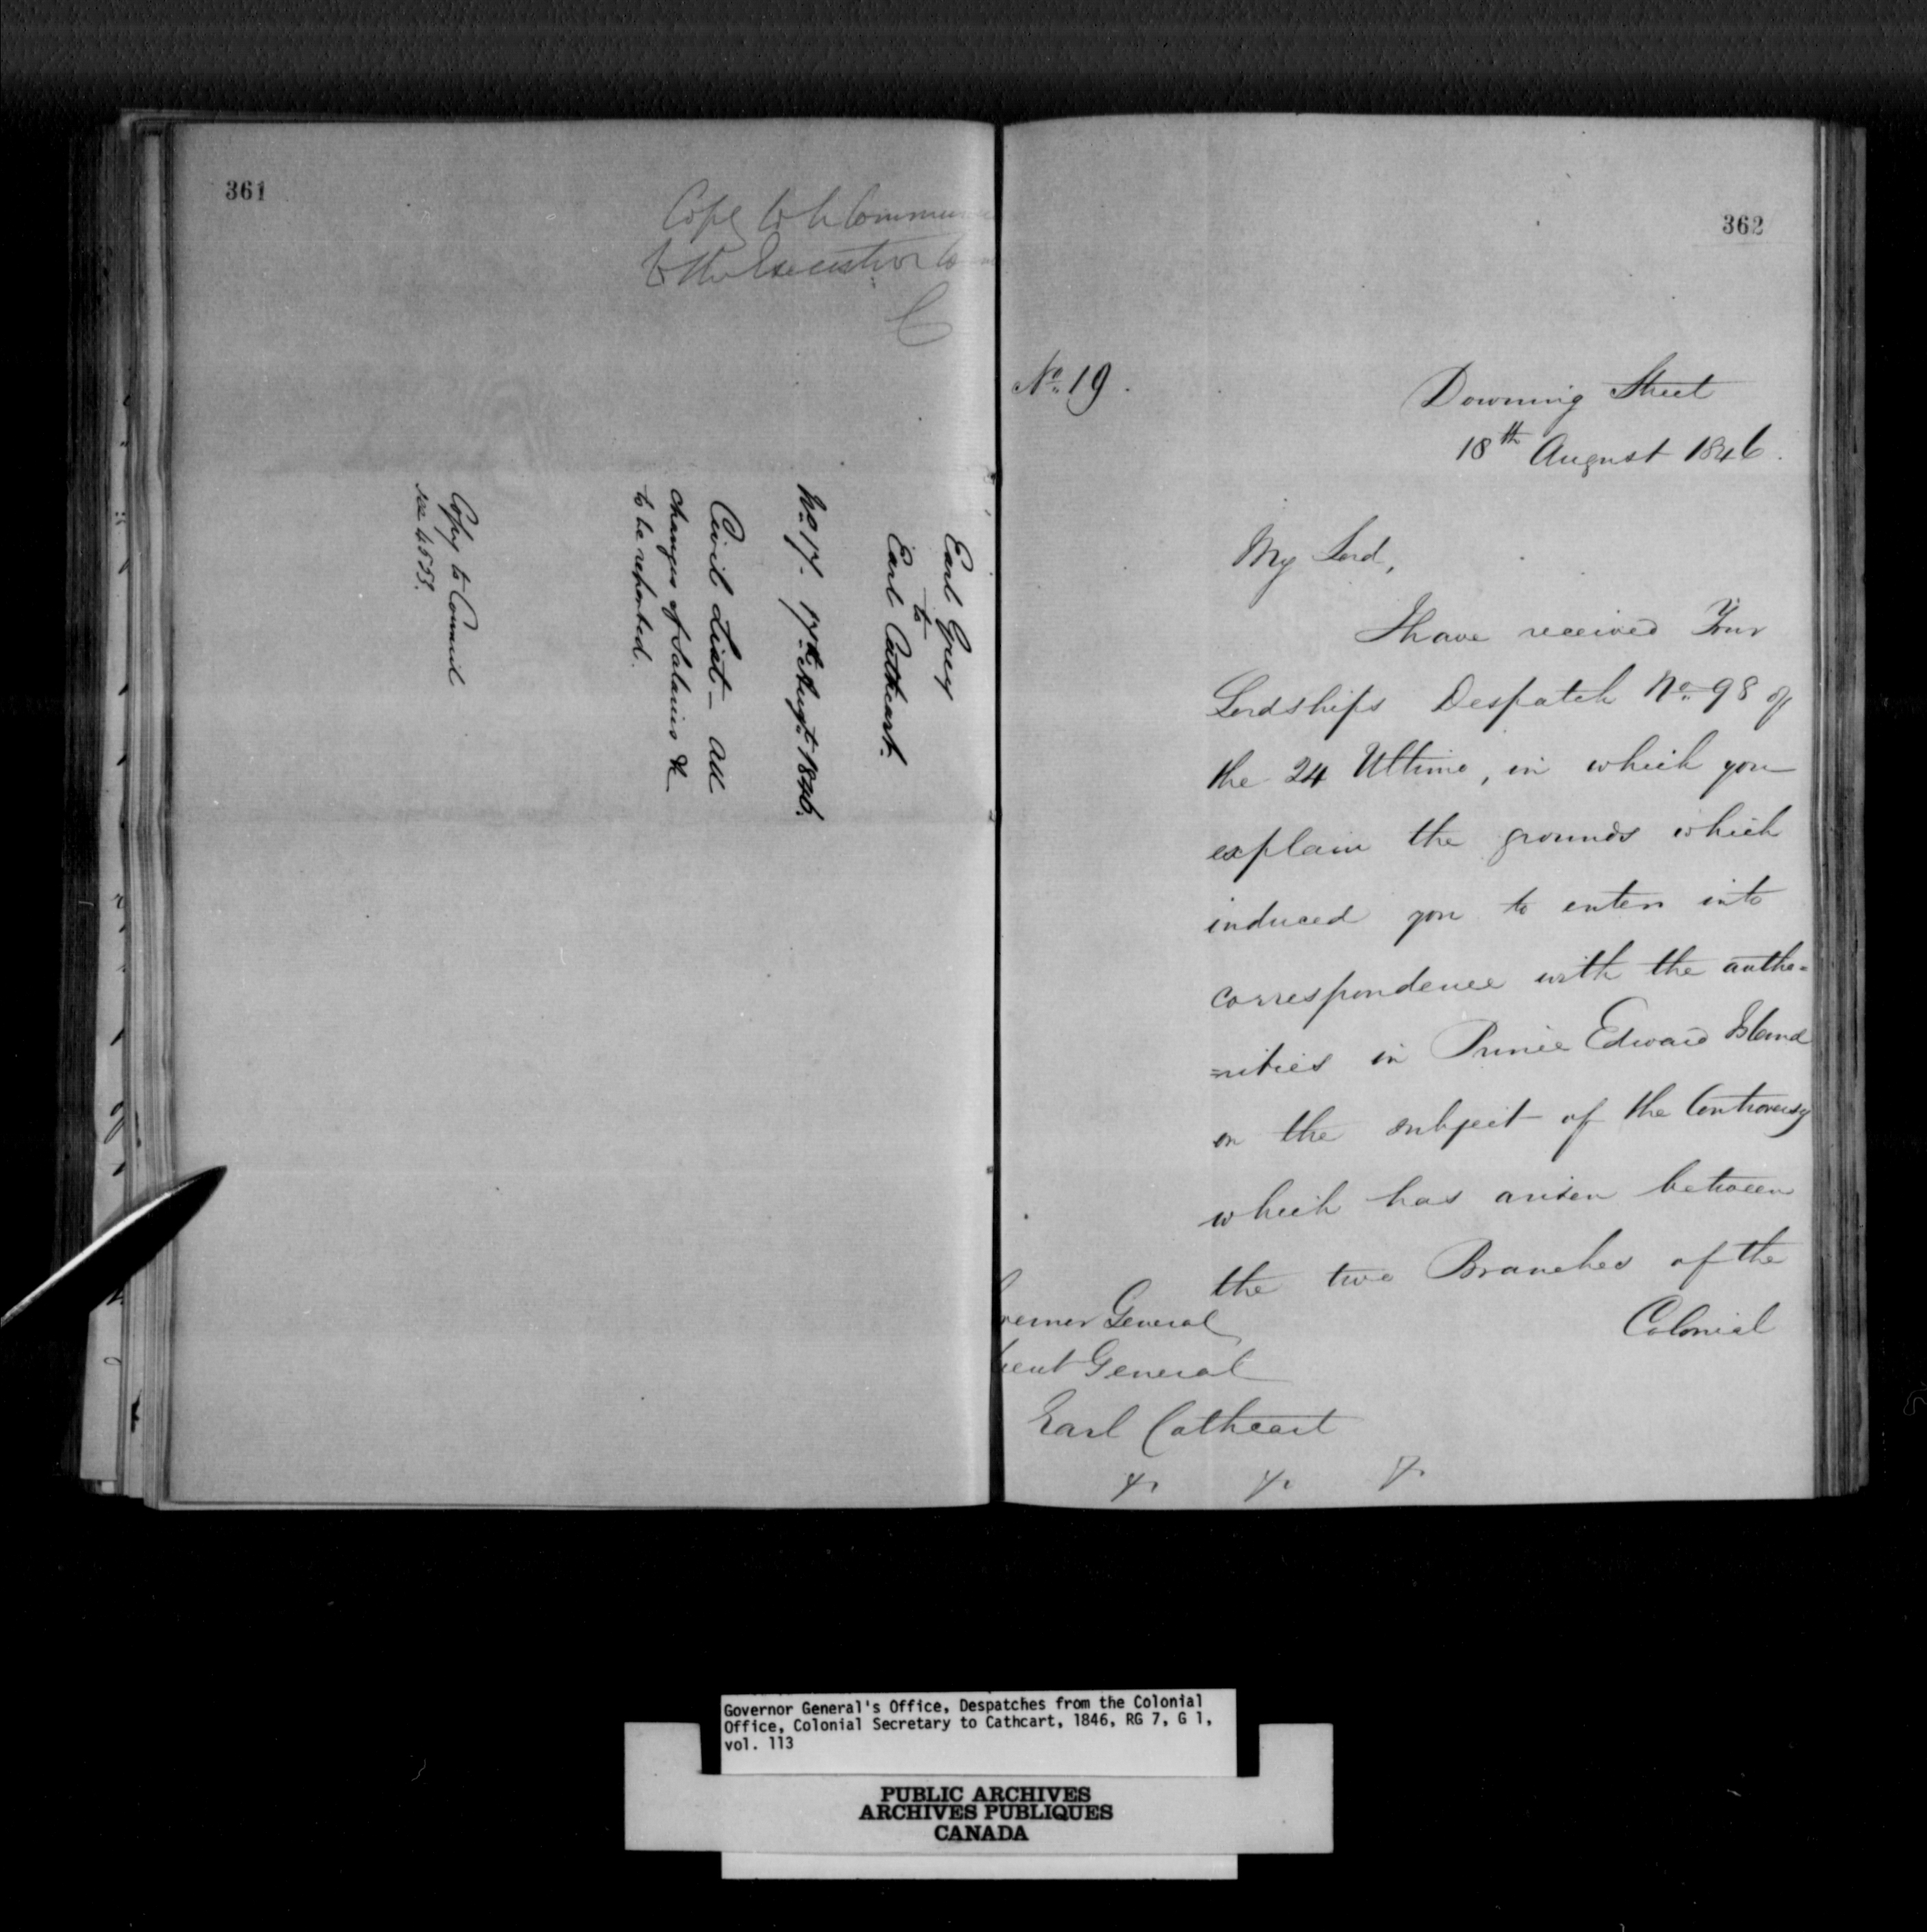 361
Copy to be
to the Executive
C
Earl Grey
to
Earl Cathcart.
No 17. 17th Augt 1846.
Civil List – All
changes of Salaries &c
to be reported.
Copy to Council
362
No. 19.
Downing Street
18th August 1846.
My Lord,
I have received Your
Lordships Despatch No. 98 of
the 24 Ultimo, in which you
explain the grounds which
induced you to enter into
correspondence with the autho=
=rities in Prince Edward Island
on the subject of the Controversy
which has arisen between
the two Branches of the
Colonial
vernor General
tenent General
Earl Cathcart
&c &c &c
Governor General's Office, Despatches from the Colonial
Office, Colonial Secretary to Cathcart, 1846, RG 7, G 1,
vol. 113
PUBLIC ARCHIVES
ARCHIVES PUBLIQUES
CANADA